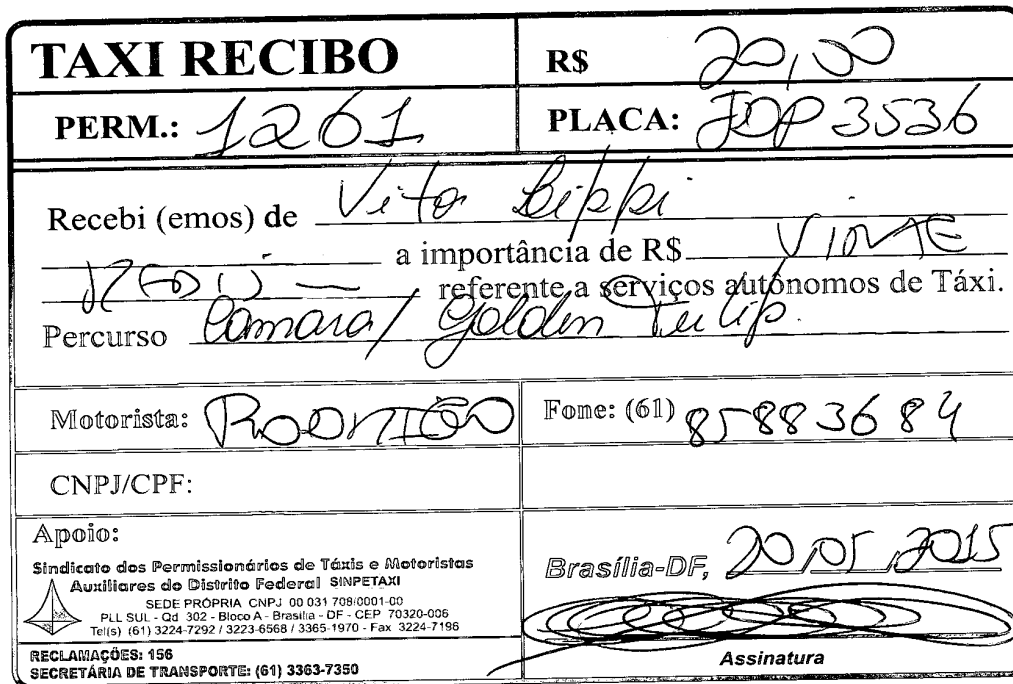 TAXI RECIBO
R$ 20,00
PERM.: 1261
PLACA: JDP 3536
Recebi (emos) de Vitor Lippi
a importância de R$ VINTE
REAIS referente a serviços autônomos de Táxi.
Percurso Camara/ Golden Tulip.
Motorista: RODRIGO
Fone: (61) 85883684
CNPJ/CPF:
Apoio:
Sindicato dos Permissionários de Táxis e Motoristas
Auxiliares do Distrito Federal SINPETAXI
SEDE PRÓPRIA CNPJ 00 031 708/0001-00
PLL SUL - Qd 302 - Bloco A - Brasília - DF - CEP 70320-006
Tel(s) (61) 3224-7292 / 3223-6568 / 3365-1970 - Fax 3224-7196
RECLAMAÇÕES: 156
SECRETÁRIA DE TRANSPORTE: (61) 3363-7350
Brasília-DF, 20/05/2015
Assinatura